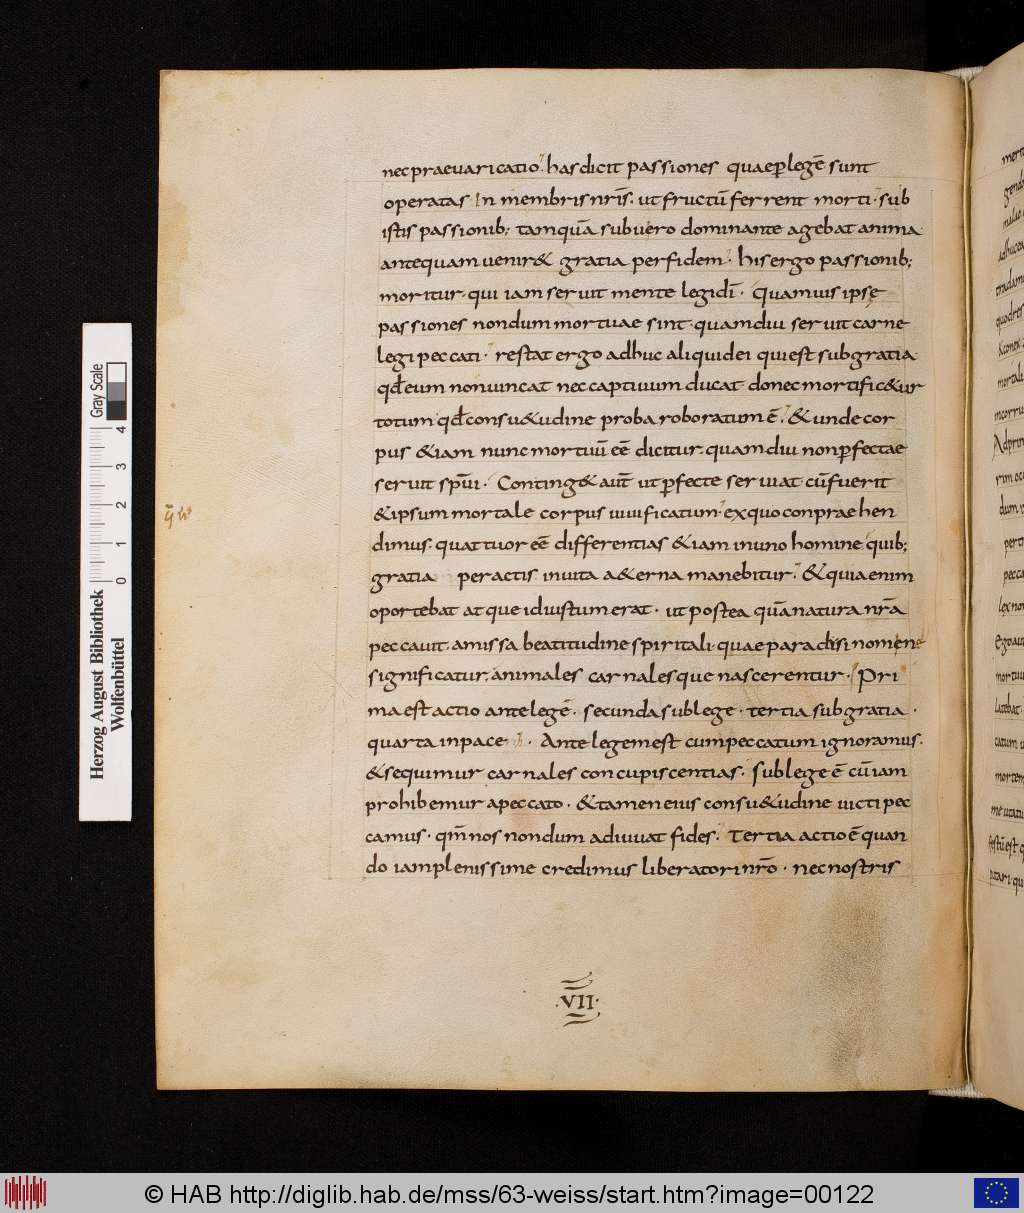 nec praeuaricatio. has dicit passiones quae p̱ legē sunt
operatas In membris nr̄is. ut fructū ferrent morti. sub
istis passionib; tamquā sub uero dominante agebat anima
antequam uenir& gratia per fidem. his ergo passionib;
moritur. qui iam seruit mente legi dī. Quamuis ipse
passiones nondum mortuae sint. quamdiu seruit carne
legi peccati. restat ergo adhuc aliquid ei qui est sub gratia
qđ eum non uincat nec captiuum ducat donec mortific&ur
totum qđ consu&udine proba roboratum ē. & unde cor
pus &iam nunc mortuū eē dicitur. quamdiu non p̱fectae
seruit sp̄ui. Conting& aut̄ ut p̱fecte seruiat cū fuerit
& ipsum mortale corpus uiuificatum. ex quo conpraehen
dimus. quattuor eē differentias &iam in uno homine quib;
gratia peractis in uita a&erna manebitur. & quia enim
oportebat atque id iustum erat. ut postea quā natura nr̄a
peccauit. amissa beatitudine spiritali. quae paradisi nomine
significatur. animales carnalesque nasceremur. Pri
ma est actio ante legē. secunda sub lege. tertia sub gratia.
quarta in pace. Ante legem est cum peccatum ignoramus.
& sequimur carnales concupiscentias. Sub lege ē cū iam
prohibemur a peccato. & tamen eius consu&udine uicti pec
camus. qm̄ nos nondum adiuuat fides. Tertia actio ē quan
do iam plenissime credimus liberatori nr̄o. nec nostris
.VII.
Herzog August Bibliothek
Wolfenbüttel
Gray Scale
0 1 2 3 4
© HAB http://diglib.hab.de/mss/63-weiss/start.htm?image=00122